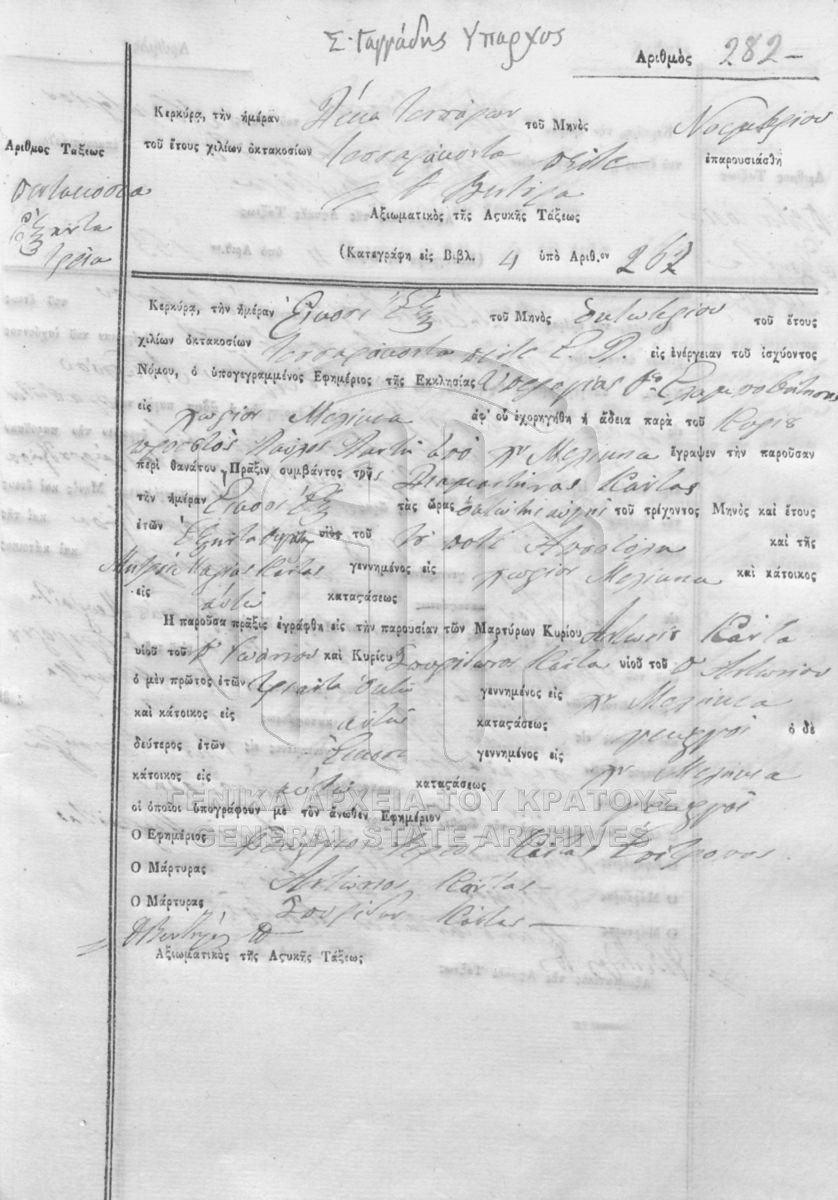 Σ. Γαρνάδης Υπαρχος
Αριθμὸς 282 —
Κερκύρᾳ, τὴν ἡμέραν Δέκα Τεσσάρων τοῦ Μηνὸς Νοεμβρίου
τοῦ ἔτους χιλίων ὀκτακοσίων τεσσαράκοντα πέντε ἐπαρουσιάσθη
Αριθμος Τάξεως
πεντακόσια
ἑξήντα
τρία
Αξιωματικὸς τῆς Αϛυκῆς Τάξεως
(Κατεγράφη εἰς Βιβλ. 4 ὑπὸ Αριθ.ον 262
Κερκύρᾳ, τὴν ἡμέραν Εἴκοσι ἕξ τοῦ Μηνὸς Οκτωβρίου τοῦ ἔτους
χιλίων ὀκτακοσίων τεσσαράκοντα πέντε Ε. Π. εἰς ἐνέργειαν τοῦ ἰσχύοντος
Νόμου, ὁ ὑπογεγραμμένος Εφημέριος τῆς Εκκλησίας
εἰς χωρίον Μελίκια ἀφ' οὗ ἐχορηγήθη ἡ ἄδεια παρὰ τοῦ Κυρίου
προεστὸς Παύλος ἀπὸ χν Μελίκια ἔγραψεν τὴν παροῦσαν
περὶ θανάτου Πρᾶξιν συμβάντος τῆς Διαμαντήνας Κάντας
τὴν ἡμέραν Εἴκοσι ἕξ τὰς ὥρας τοῦ τρέχοντος Μηνὸς καὶ ἔτους
ἐτῶν Εξήντα υἱὸς τοῦ ποτὲ Αποστόλη καὶ τῆς
Κάντας γεννημένος εἰς χωρίον Μελίκια καὶ κάτοικος
εἰς αὐτῶ καταϛάσεως
Η παροῦσα πρᾶξις ἐγράφθη εἰς τὴν παρουσίαν τῶν Μαρτύρων Κυρίου Αντωνίου Κάντα
υἱοῦ τοῦ Ἰωάννου καὶ Κυρίου Σπυρίδωνος Κάντα υἱοῦ τοῦ Αντωνίου
ὁ μὲν πρῶτος ἐτῶν τριάντα ὀκτώ γεννημένος εἰς χν Μελίκια
καὶ κάτοικος εἰς αὐτῶ καταϛάσεως γεωργοί ὁ δὲ
δεύτερος ἐτῶν Είκοσι γεννημένος εἰς χν Μελίκια
κάτοικος εἰς αὐτῶ καταϛάσεως γεωργοί
οἱ ὁποῖοι ὑπογράφουν μὲ τὸν ἄνωθεν Εφημέριον
Ο Εφημέριος Κάντας
Ο Μάρτυρας Αντώνιος Κάντας
Ο Μάρτυρας Σπυρίδων Κάντας
Αξιωματικὸς τῆς Αϛυκῆς Τάξεως
ΓΕΝΙΚΑ ΑΡΧΕΙΑ ΤΟΥ ΚΡΑΤΟΥΣ
GENERAL STATE ARCHIVES